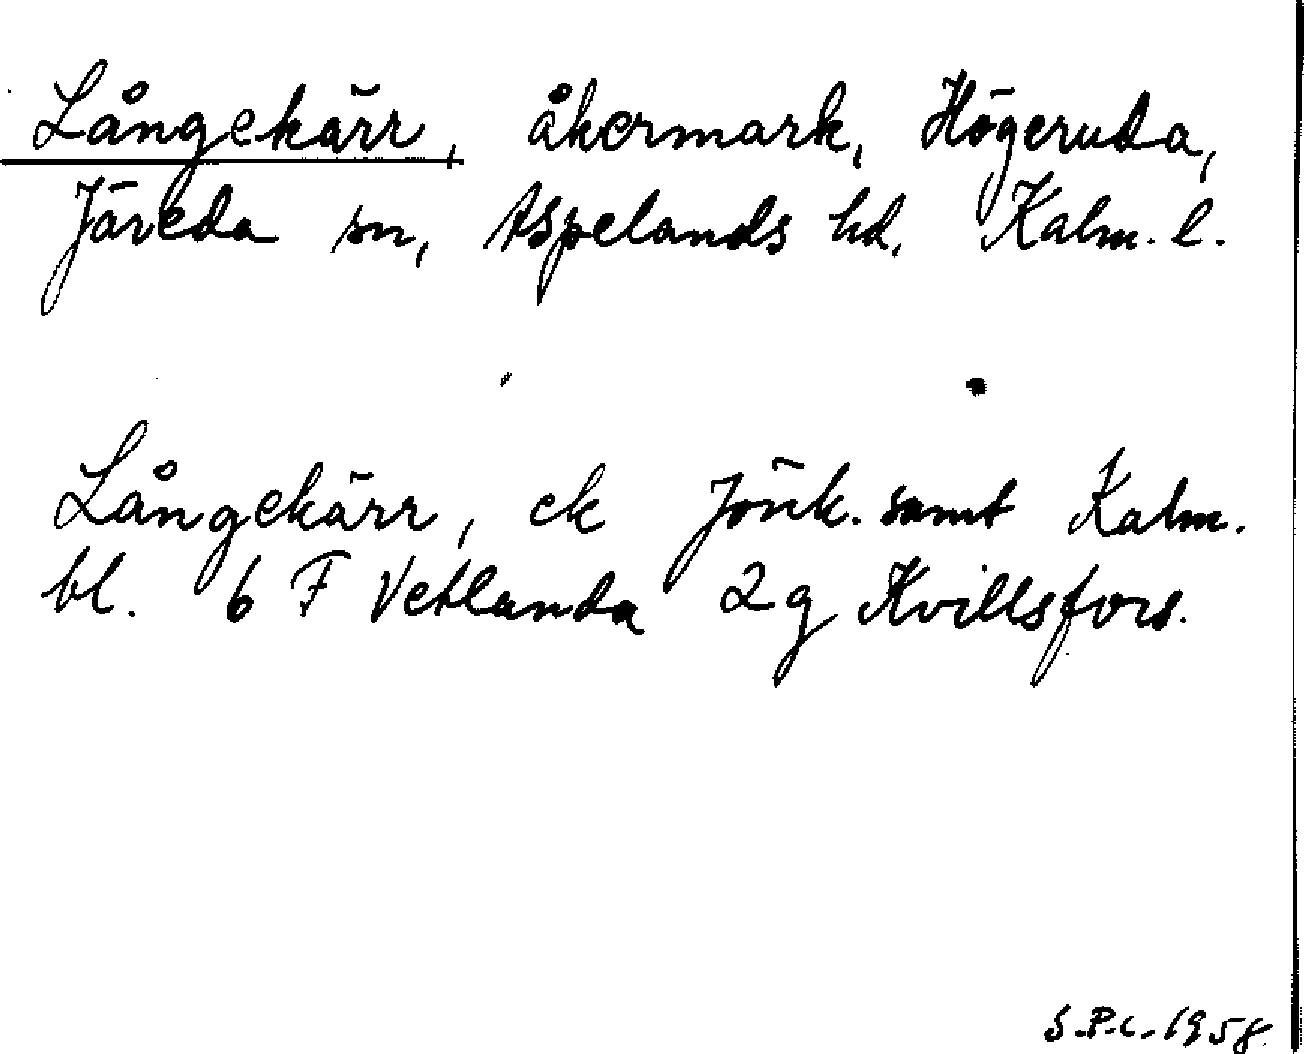 Långekärr, åkermark, Högeruda,
Järeda sn, Aspelands hd. Kalm. l.
Långekärr, ek Jönk. samt Kalm.
bl. 6 F Vetlanda 2g Kvillsfors.
S.P.C. 1958